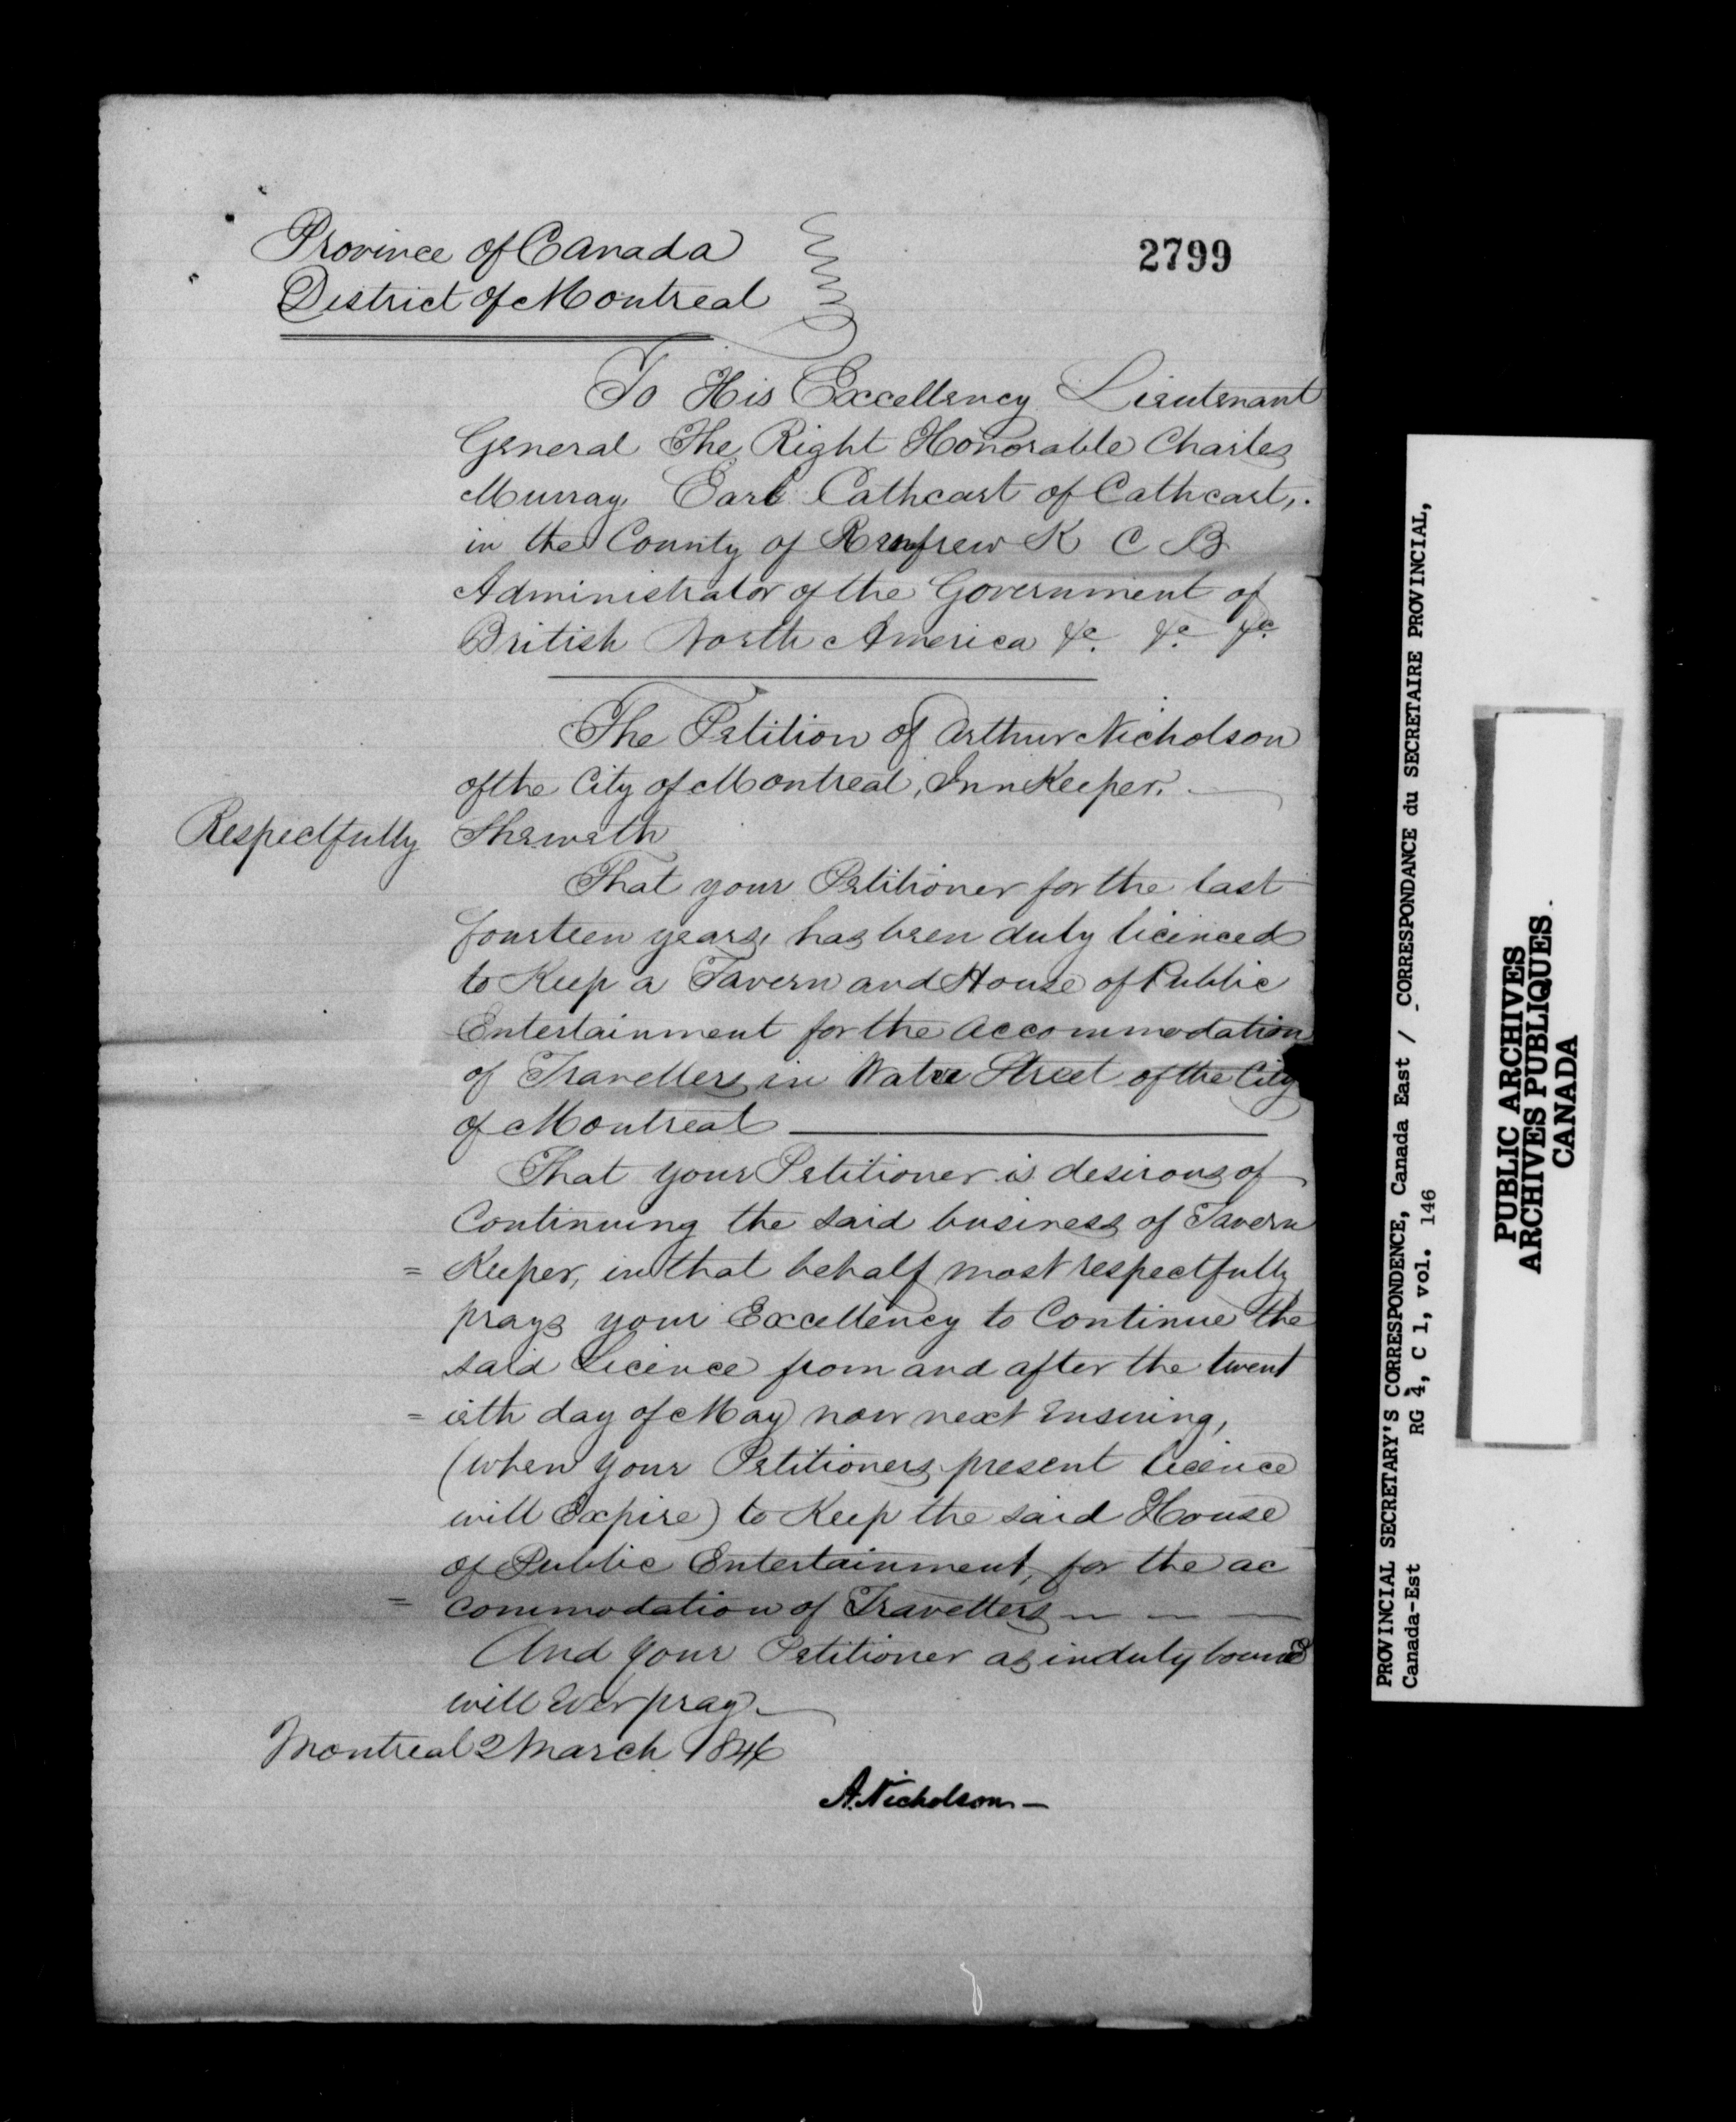 Province of Canada
District of Montreal
2799
To His Excellency Lieutenant
General The Right Honorable Charles
Murray Earl Cathcart of Cathcart,.
in the County of Renfrew K C B
Administrator of the Government of
British North America &c. &c. &c.
The Petition of Arthur Nicholson
of the City of Montreal, Inn Keeper.
Respectfully Sheweth
That your Petitioner for the last
fourteen years, has been duly licenced
to Keep a Tavern and House of Public
Entertainment for the accommodation
of Travellers in Water Street of the City
of Montreal
That your Petitioner is desirous of
Continuing the said business of Tavern
= Keeper, in that behalf most respectfully
prays your Excellency to Continue the
said Licence from and after the twent
= ieth day of May now next Ensuing,
(when your Petitioners present licence
will Expire) to Keep the said House
of Public Entertainment, for the ac
= commodation of Travellers
And your Petitioner as in duty bound
will Ever pray
Montreal 2 March 1846
A. Nicholson
PROVINCIAL SECRETARY'S CORRESPONDENCE, Canada East / CORRESPONDANCE du SECRETAIRE PROVINCIAL,
Canada-Est RG 4, C 1, vol. 146
PUBLIC ARCHIVES
ARCHIVES PUBLIQUES
CANADA